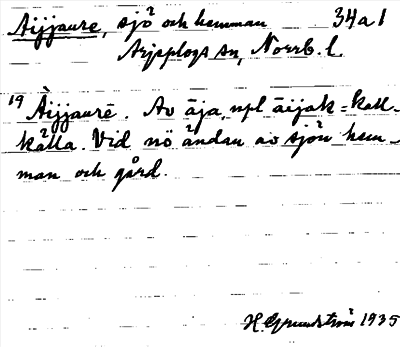 Aijjaure, sjö och hemman 34a1
Arjeplogs sn, Norrb. l.
19 Àijjaurē. Av āja, npl āijak = kall-
källa. Vid nö ändan av sjön hem-
man och gård.
H. Grundström 1935